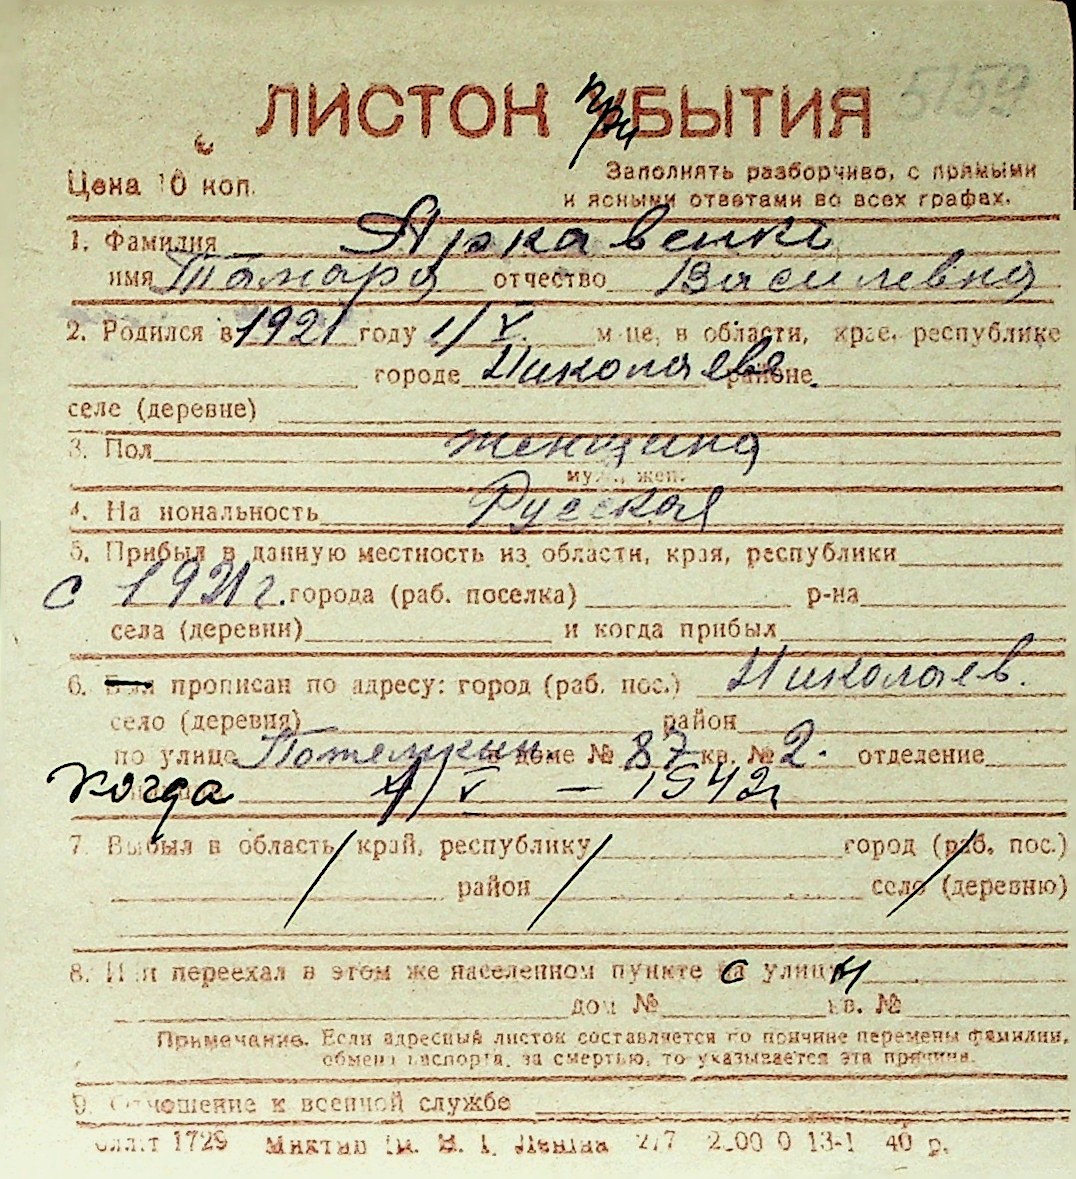 5159
ЛИСТОК при БЫТИЯ
Цена 10 коп.
Заполнять разборчиво, с прямыми
и ясными ответами во всех графах.
1. Фамилия Яркавенко
имя Тамара отчество Василевна
2. Родился в 1921 году 1/V. м-це, в области, крае, республике
городе Николаеве районе
селе (деревне)
3. Пол женщина
муж., жен.
4. Национальность Русская
5. Прибыл в данную местность из области, края, республики
с 1921 г. города (раб. поселка) р-на
села (деревни) и когда прибыл
6. прописан по адресу: город (раб. пос.) Николаев.
село (деревня) район
по улице Потемкин. в доме № 87 кв. № 2. отделение
когда 4/V – 1942 г
7. Выбыл в область, край, республику город (раб. пос.)
район село (деревню)
8. Или переехал в этом же населенном пункте с улицы
дом № кв. №
Примечание. Если адресный листок составляется по причине перемены фамилии,
обмена паспорта, за смертью, то указывается эта причина.
9. Отношение к военной службе
1729 Ленина 217 13-1 40 р.